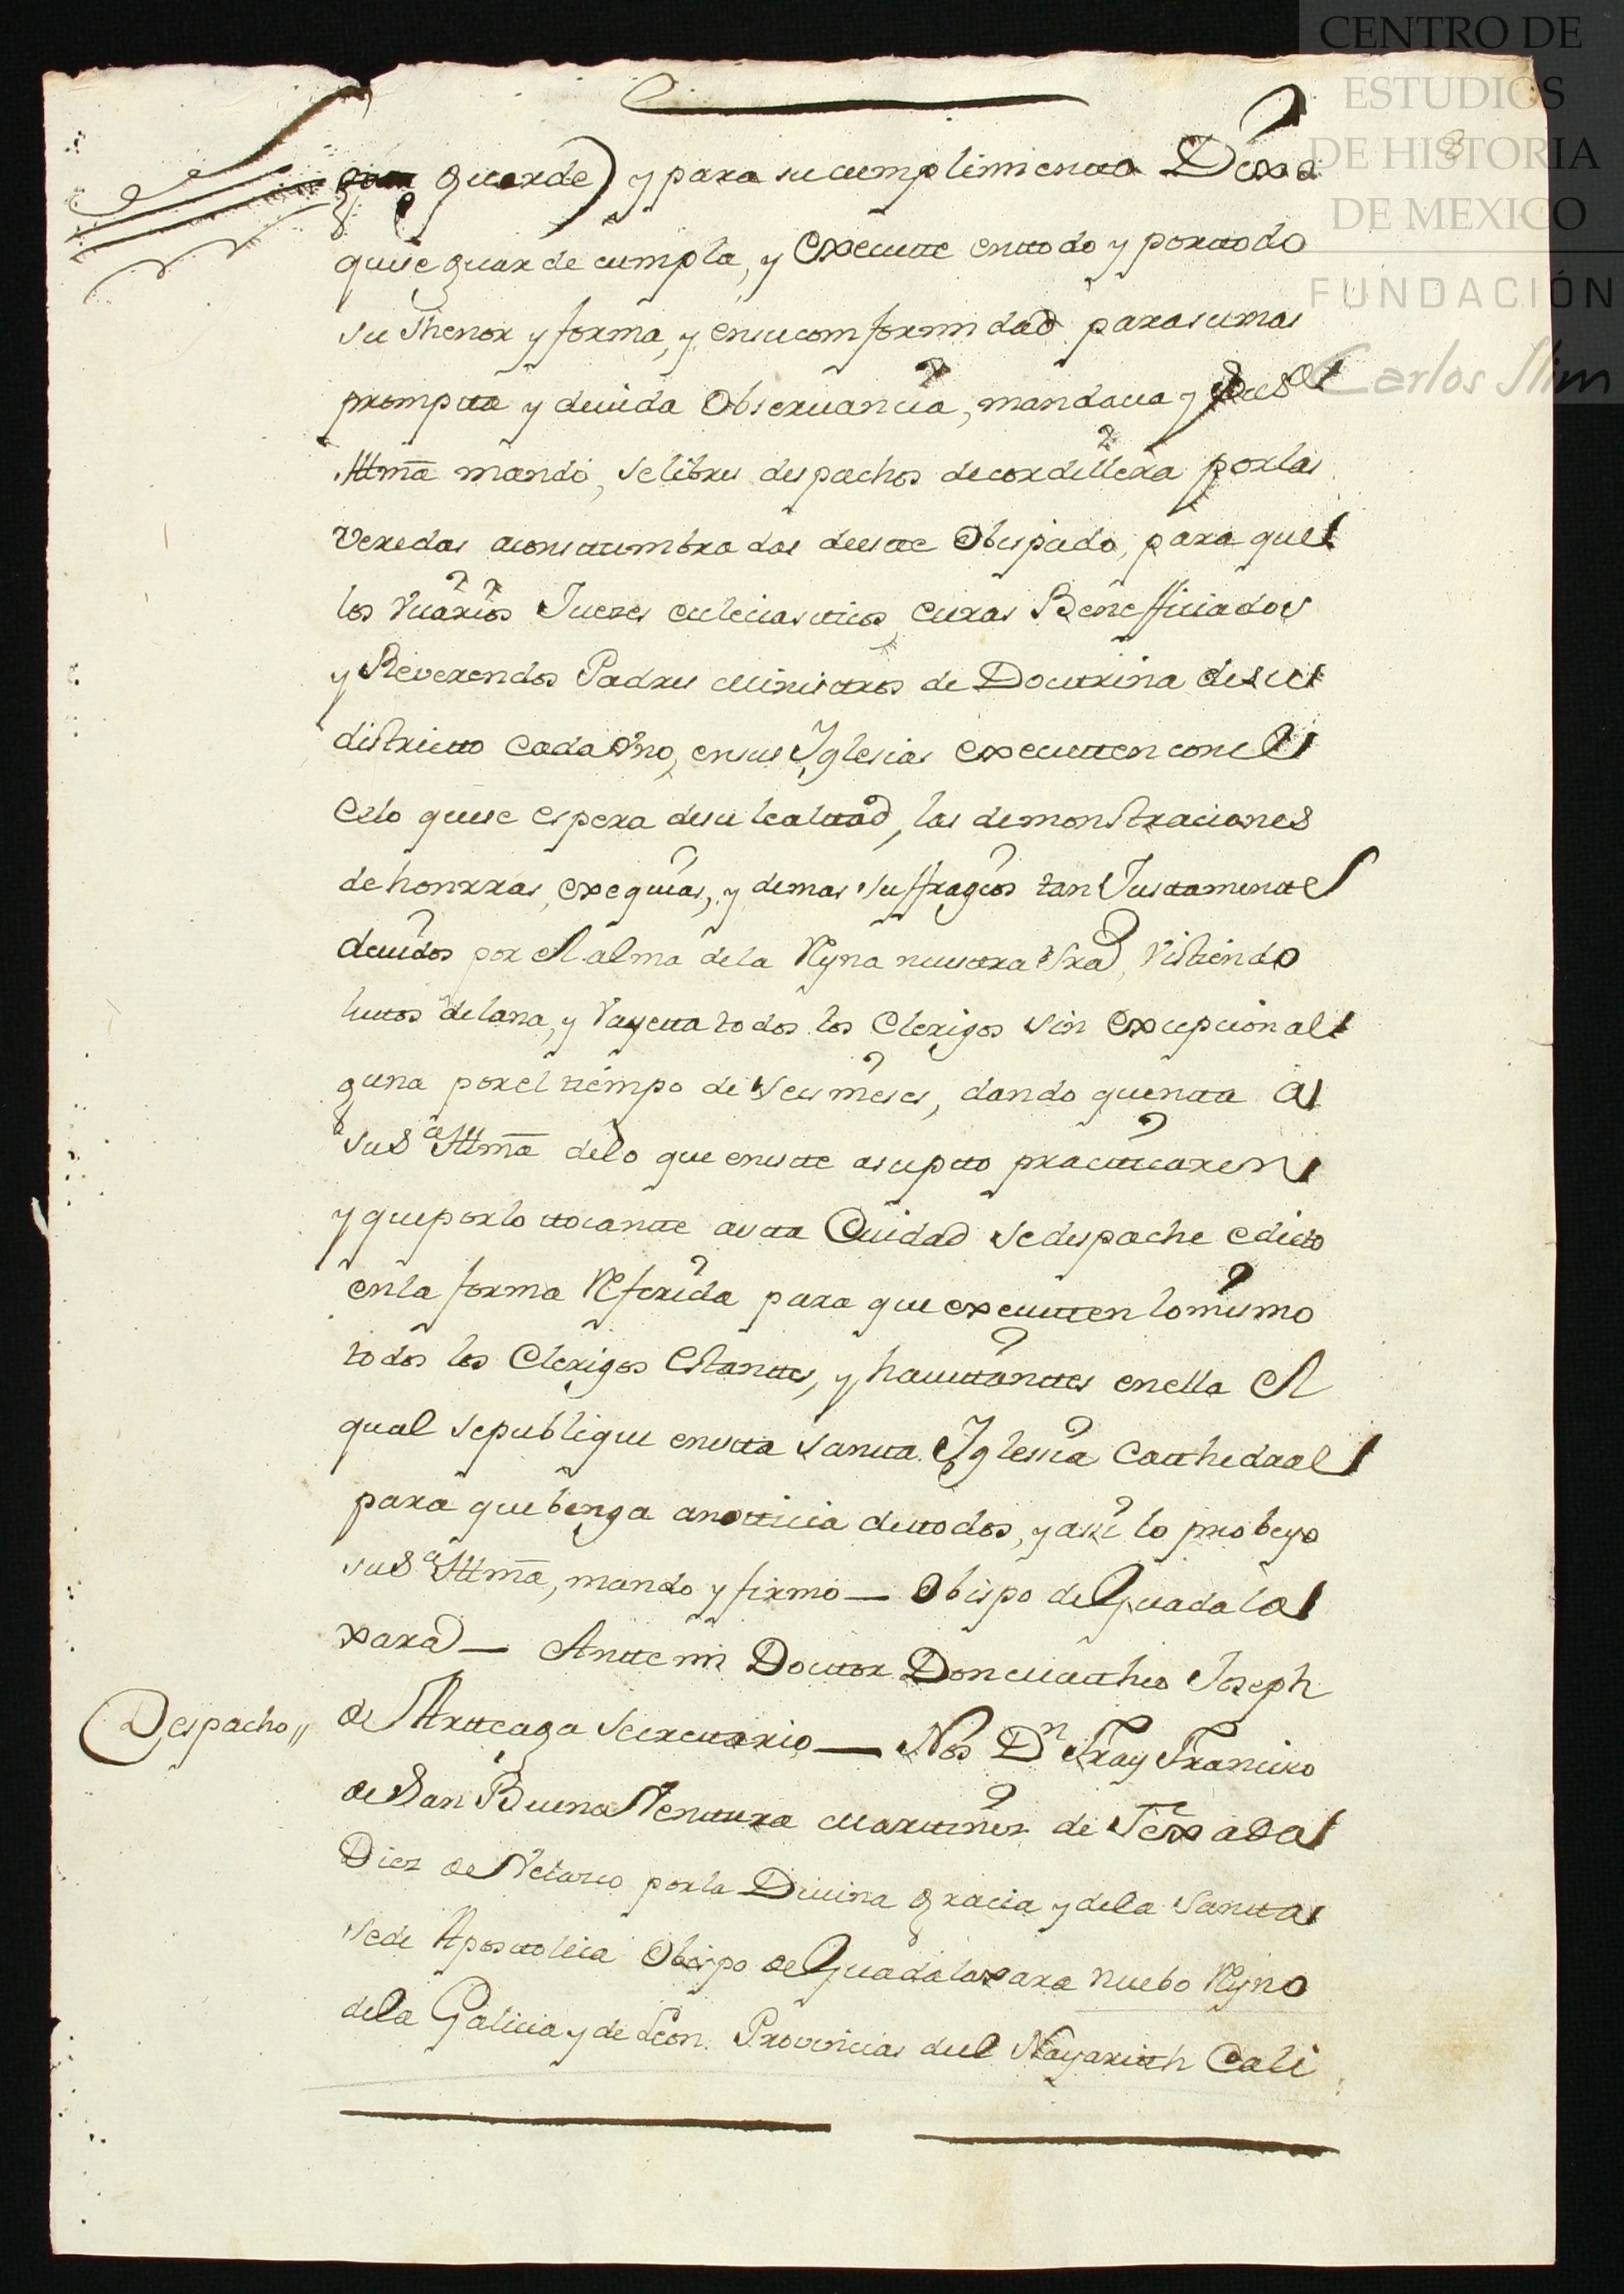 CENTRO DE
ESTUDIOS
DE HISTORIA
DE MEXICO
FUNDACIÓN
Carlos Slim
guarde) y para su cumplimientto Dixo
que se guarde cumpla, y execute en ttodo y por ttodo
su thenor y forma, y en su comformidad para su mas
prompta y deuida Obseruancia, mandaua y su S.ª
Illmã mandó, se libres despachos de cordillera por las
Veredas aconsttumbradas de estte Obispado, para que
los Vicarios Juezes eccleciasticos, curas Beneffiziados
y Reverendos Padres Ministtros de Docttrina de su
districtto Cada Vno, en sus Iglesias executten con el
celo que se espera de su lealttad, las demonstraciones
de honrras, exequias, y demas suffragios tan Justtamentte
deuidos por el alma de la Reyna nuesttra Sra, Vistiendo
luttos de lana, y Vayetta todos los Clerigos sin excepcion al
guna por el tiempo de seis meses, dando quentta a
su S.ª Illmã de lo que en estte asumptto practticaren
y que por lo ttocantte a estta Ciudad se despache edicto
en la forma Referida para que executten lo mismo
todos los Clerigos Estanttes, y hauittanttes en ella el
qual se publique en estta Santta Iglesia Catthedral
para que benga a notticia de ttodos, y assi lo probeyo
su S.ª Illmã, mando y firmó — Obispo de Guadala
xara — Antte mi Docttor Don Matheo Joseph
Despacho,, de Artteaga Secrettario — Nos Dn Fray Francisco
de San Buena Venttura Marttinez de Texada
Diez de Velasco por la Diuina gracia y de la Santta
Sede Aposttolica Obispo de Guadalaxara nuebo Reyno
de la Galicia y de Leon. Provincias del Nayaritth Cali